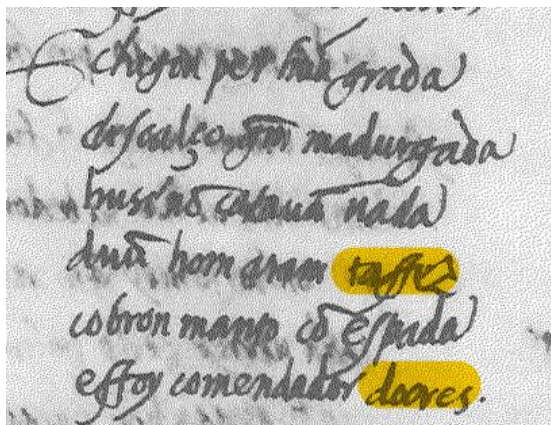 chegou per huã grada
descalço gram madurgada
hussenõ catauã nada
duũ hom gram taffuz
cobrou manto cõ espada
effoy comendador docres.